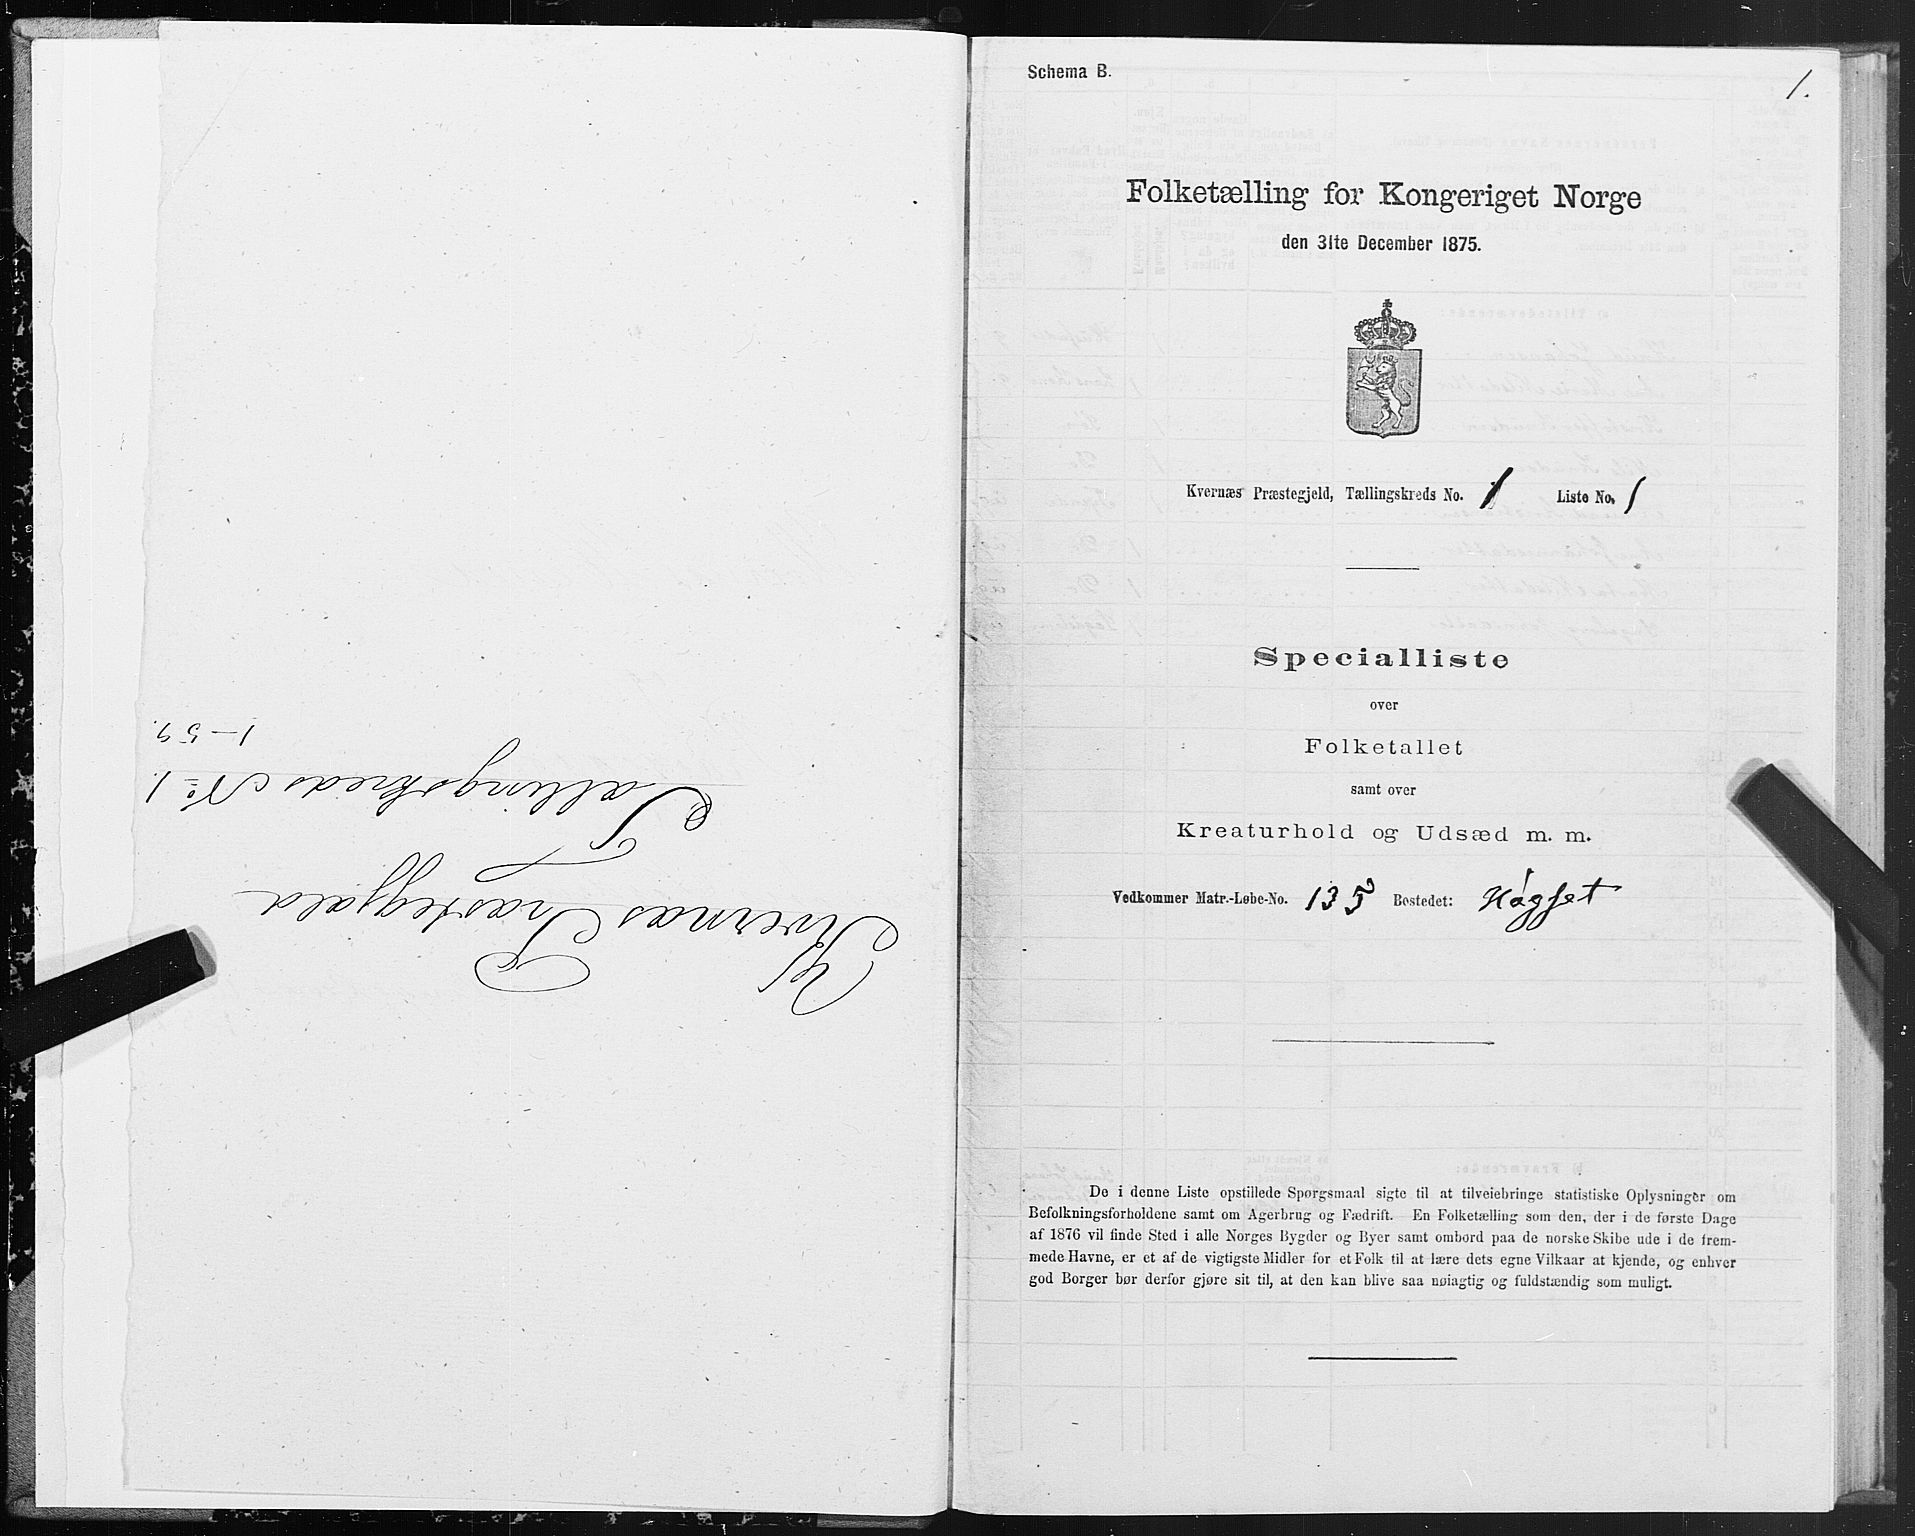 Kvernæs Præstegjæld
Tællingskreds No 1.
1-59.
Schema B.
1.
Folketælling for Kongeriget Norge
den 31te December 1875.
Kvernæs Præstegjeld, Tællingskreds No. 1 Liste No. 1
Specialliste
over
Folketallet
samt over
Kreaturhold og Udsæd m. m.
Vedkommer Matr.-Løbe-No. 135 Bostedet: Høgset
De i denne Liste opstillede Spørgsmaal sigte til at tilveiebringe statistiske Oplysninger om
Befolkningsforholdene samt om Agerbrug og Fædrift. En Folketælling som den, der i de første Dage
af 1876 vil finde Sted i alle Norges Bygder og Byer samt ombord paa de norske Skibe ude i de frem-
mede Havne, er et af de vigtigste Midler for et Folk til at lære dets egne Vilkaar at kjende, og enhver
god Borger bør derfor gjøre sit til, at den kan blive saa nøiagtig og fuldstændig som muligt.